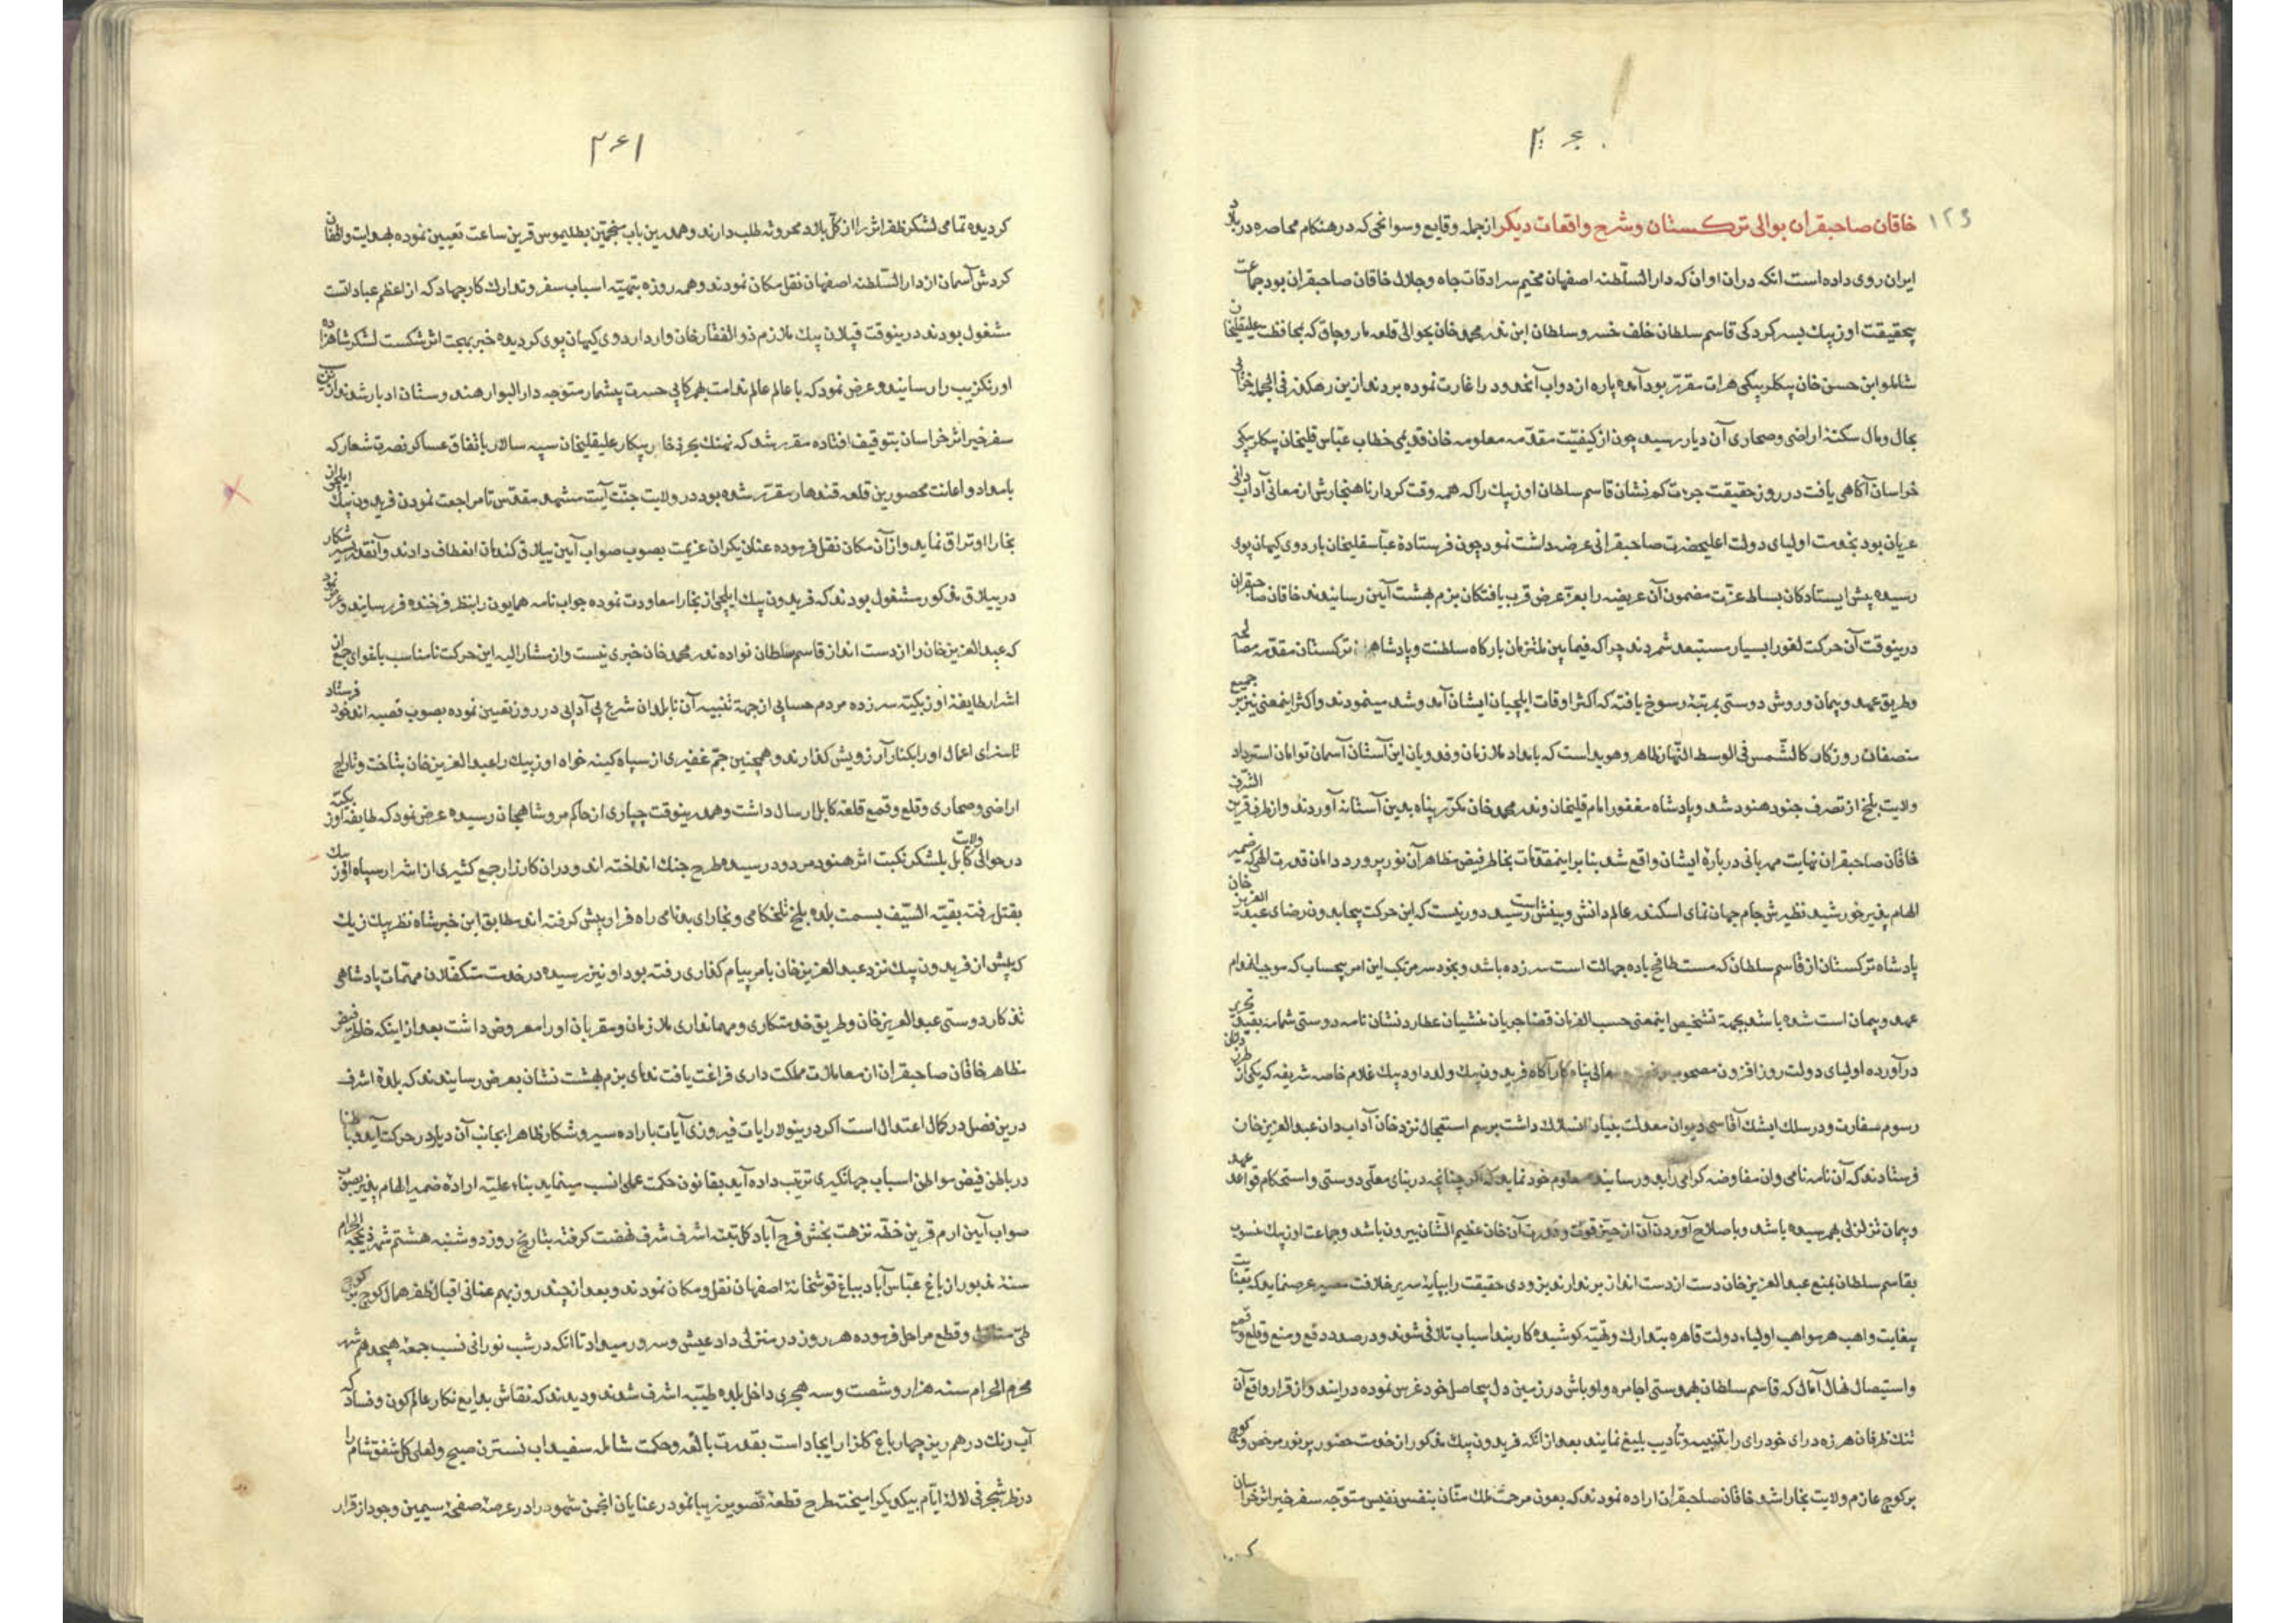 ۲۶۰
۱۲۶
خاقان صاحبقران بوالی ترکستان و شرح واقعات دیکر از جمله وقایع و سوانحی که در هنکام محاصره در بلاد
ایران روی داده است انکه دران اوان که دار السلطنه اصفهان مخیم سرادقات جاه و جلال خاقان صاحبقران بود جماعت
بیحقیقت اوزبیک بسرکردکی قاسم سلطان خلف خسرو سلطان ابن ندر محمد خان بحوالی قلعه ماروچاق که بمحافظت علیقلیخان
شاملو ابن حسن خان بیکلربیکی هرات مقرر بود آمده پاره از دواب آنحدود را غارت نموده بردند ازین رهکذر فی الجمله خرابی
بحال و مال سکنۀ اراضی و صحاری آن دیار رسید چون از کیفیت مقدمه معلومه خان قدیمی خطاب عباس قلیخان بیکلربیکی
خراسان آکاهی یافت در روز حقیقت جرءت کم نشان قاسم سلطان اوزبیک را که همه وقت کردار ناهنجارش از معانی آداب دانی
عریان بود بخدمت اولیای دولت اعلیحضرت صاحبقرانی عرضه داشت نمود چون فرستادۀ عباسقلیخان باردوی کیهان پوی
رسیده پیش ایستادکان بساط عزت مضمون آن عریضه را بعز عرض قرب یافتکان بزم بهشت آیین رسانیدند خاقان صاحبقران
درینوقت آن حرکت لغو را بسیار مستبعد شمردند چرا که فیما بین ملتزمان بارکاه سلطنت و پادشاهان ترکستان مقدمه مصالحه
و طریق عهد و پیمان و روش دوستی بمرتبۀ رسوخ یافته که اکثر اوقات ایلچیان ایشان آمد و شد مینمودند و اکثر اینمعنی نیز بر جمیع
منصفان روزکار کالشمس فی الوسط النهار ظاهر و هویداست که بامداد ملازمان و فدویان این آستان آسمان توامان استرداد
ولایت بلخ از تصرف جنود هنود شد و پادشاه مغفور امام قلیخان و ندر محمد خان مکرر پناه بدین آستانه آوردند و از طرف قرین الشرف
خاقان صاحبقران نهایت مهربانی دربارۀ ایشان واقع شد بنابر اینمقدمات بخاطر فیض مظاهر آن نور پرورد دامان قدرت الهی که ضمیر
الهام پذیر خورشید نظیرش جام جهان نمای اسکندر عالم دانش و بینش است رسید دور نیست که این حرکت بیجا بدون رضای عبد العزیز خان
پادشاه ترکستان از قاسم سلطان که مست طافح باده جهالت است سر زده باشد و بخود سر مرتکب این امر بیحساب که موجب انهدام
عهد و پیمان است شده باشد بجهة تشخیص اینمعنی حسب الفرمان قضا جریان منشیان عطارد نشان نامه دوستی شمامه بقید تحریر
درآورده اولیای دولت روز افزون مصحوب عالی پناه کار آکاه فریدون بیک ولد داود بیک غلام خاصه شریفه که یکی از طرز دانان
رسوم سفارت و در سلک ایشک آقاسی دیوان معدلت بنیان انسلاک داشت برسم استعجال نزد خان آداب دان عبد العزیز خان
فرستادند که آن نامه نامی و ان مفاوضه کرامی را بدو رسانیده معلوم خود نماید که اکر چنانچه در بنای معلی دوستی و استحکام قواعد عهد
و پیمان تزلزلی بهم رسیده باشد و باصلاح آوردن آن از حیز قوت و قدرت آن خان عظیم الشان بیرون باشد و جماعت اوزبیک منسوب
بقاسم سلطان بمنع عبد العزیز خان دست از دست انداز برندارند بزودی حقیقت را بپایۀ سریر خلافت مصیر عرض نماید که بعنایت
بیغایت واهب هر مواهب اولیاء دولت قاهره بتدارک و تهیه کوشیده کاربند اسباب تلافی شوند و در صدد دفع و منع و قلع و قمع
و استیصال نهال آمال که قاسم سلطان بهمدستی اجامره و اوباش در زمین دل بیحاصل خود غرس نموده درایند و از قرار واقع آن
تنک ظرفان هرزه درای خود رای را بتنبیه و تأدیب بلیغ نمایند بعد از انکه فریدون بیک مذکور از خدمت حضور پر نور مرخص و کوچ
بر کوچ عازم ولایت بخارا شد خاقان صاحبقران اراده نمودند که بعون مرحمت ملک منان بنفس نفیس متوجه سفر خیر اثر خراسان
۲۶۱
کردیده تمامی لشکر ظفر اثر را از کل بلاد محروسه طلب دارند و همدرین باب منجمین بطلیموس قرین ساعت تعیین نموده بهدایت واقفان
کردش آسمان از دار السلطنه اصفهان نقل مکان نمودند و همه روزه بتهیۀ اسباب سفر و تدارک کار جهاد که از اعظم عباداتست
مشغول بودند درینوقت قپلان بیک ملازم ذو الفقار خان وارد اردوی کیهان پوی کردیده خبر بهجت اثر شکست لشکر شاهزاده
اورنکزیب را رسانیده عرض نمود که با عالم عالم ندامت بهمرکابی حسرت بیشمار متوجه دار البوار هندوستان ادبار شدند ازین
سفر خیر اثر خراسان بتوقیف افتاده مقرر شد که نهنک بحر ذخار پیکار علیقلیخان سپه سالار باتفاق عساکر نصرت شعار که
بامداد و اعانت محصورین قلعه قندهار مقرر شده بود در ولایت جنت آیت مشهد مقدس تا مراجعت نمودن فریدون بیک ایلچی از
بخارا اوتراق نماید و از آن مکان نقل فرموده عنان یکران عزیمت بصوب صواب آیین ییلاق کندمان انعطاف دادند و آنقدر بسیر شکار
در ییلاق مذکور مشغول بودند که فریدون بیک ایلچی از بخارا معاودت نموده جواب نامه همایون را بنظر فرخنده فر رسانید و عرض نمود
که عبد العزیز خان را از دست انداز قاسم سلطان نواده ندر محمد خان خبری نیست و از مشار الیه این حرکت نامناسب باغوای جمعی از
اشرار طایفۀ اوزبکیه سر زده مردم حسابی از جهة تنبیه آن نابلدان شرع بی آدابی در روز تعیین نموده بصوب قصبه اندخود فرستاد
تا سزای اعمال او را بکنار آرزویش کذارند و همچنین جم غفیری از سپاه کینه خواه اوزبیک را عبد العزیز خان بتاخت و تاراج
اراضی و صحاری و قلع و قمع قلعه کابل ارسال داشت و همدرینوقت چپاری از حاکم مرو شاهیجان رسیده عرض نمود که طایفه اوزبکیه
در حوالی ولایت کابل بلشکر نکبت اثر هنود مردود رسیده طرح جنک انداخته اند و دران کارزار جمع کثیری از اشرار سپاه اوزبیک
بقتل رفته بقیة السیف بسمت بلده بلخ تلخکامی و بخارای بدنامی راه فرار پیش کرفته اند مطابق این خبر شاه نظر بیک زیک
که پیش از فریدون بیک نزد عبد العزیز خان بامر پیام کذاری رفته بود او نیز رسیده در خدمت متکفلان مهمات پادشاهی
تذکار دوستی عبد العزیز خان و طریق خدمتکاری و مهمانداری ملازمان و مقربان او را معروض داشت بعد از اینکه خاطر فیض
مظاهر خاقان صاحبقران از معاملات مملکت داری فراغت یافت ندمای بزم بهشت نشان بعرض رسانیدند که بلدۀ اشرف
درین فصل در کمال اعتدال است اکر درینولا رایات فیروزی آیات باراده سیر و شکار ظاهرا بجانب آن دیار در حرکت آید و باطنا
در باطن فیض مواطن اسباب جهانکیری ترتیب داده آید بقانون حکمت عملی انسب مینماید بناء علیه ارادۀ ضمیر الهام پذیر بصوب
صواب آیین ارم قرین خطه نزهت بخش فرح آباد کل بقعه اشرف شرف نهضت کرفته بتاریخ روز دوشنبه هشتم شهر ذیحجة الحرام
سنۀ مذبور از باغ عباس آباد بباغ قوشخانۀ اصفهان نقل و مکان نمودند و بعد از چند روز بهم عنانی اقبال ظفر همال کوچ بر کوچ
طی منازل و قطع مراحل فرموده هر روز در منزلی داد عیش و سرور میداد تا انکه در شب نورانی نسب جمعۀ هیجدهم شهر
محرم الحرام سنه هزار و شصت و سه هجری داخل بلده طیبه اشرف شدند و دیدند که نقاش بدایع نکار عالم کون و فساد که
آب رنک در هم ریز چهار باغ کلزار ایجاد است بقدرت بالغه و حکمت شامله سفیداب نسترن صبح و لعلی کل شفق شام را
در ظرف شجرفی لالۀ ایام بیکدیکر امیخته طرح قطعۀ تصویر زیبا نمود رعنایان انجمن شهود را در عرصۀ صفحۀ سیمین وجود از قرار